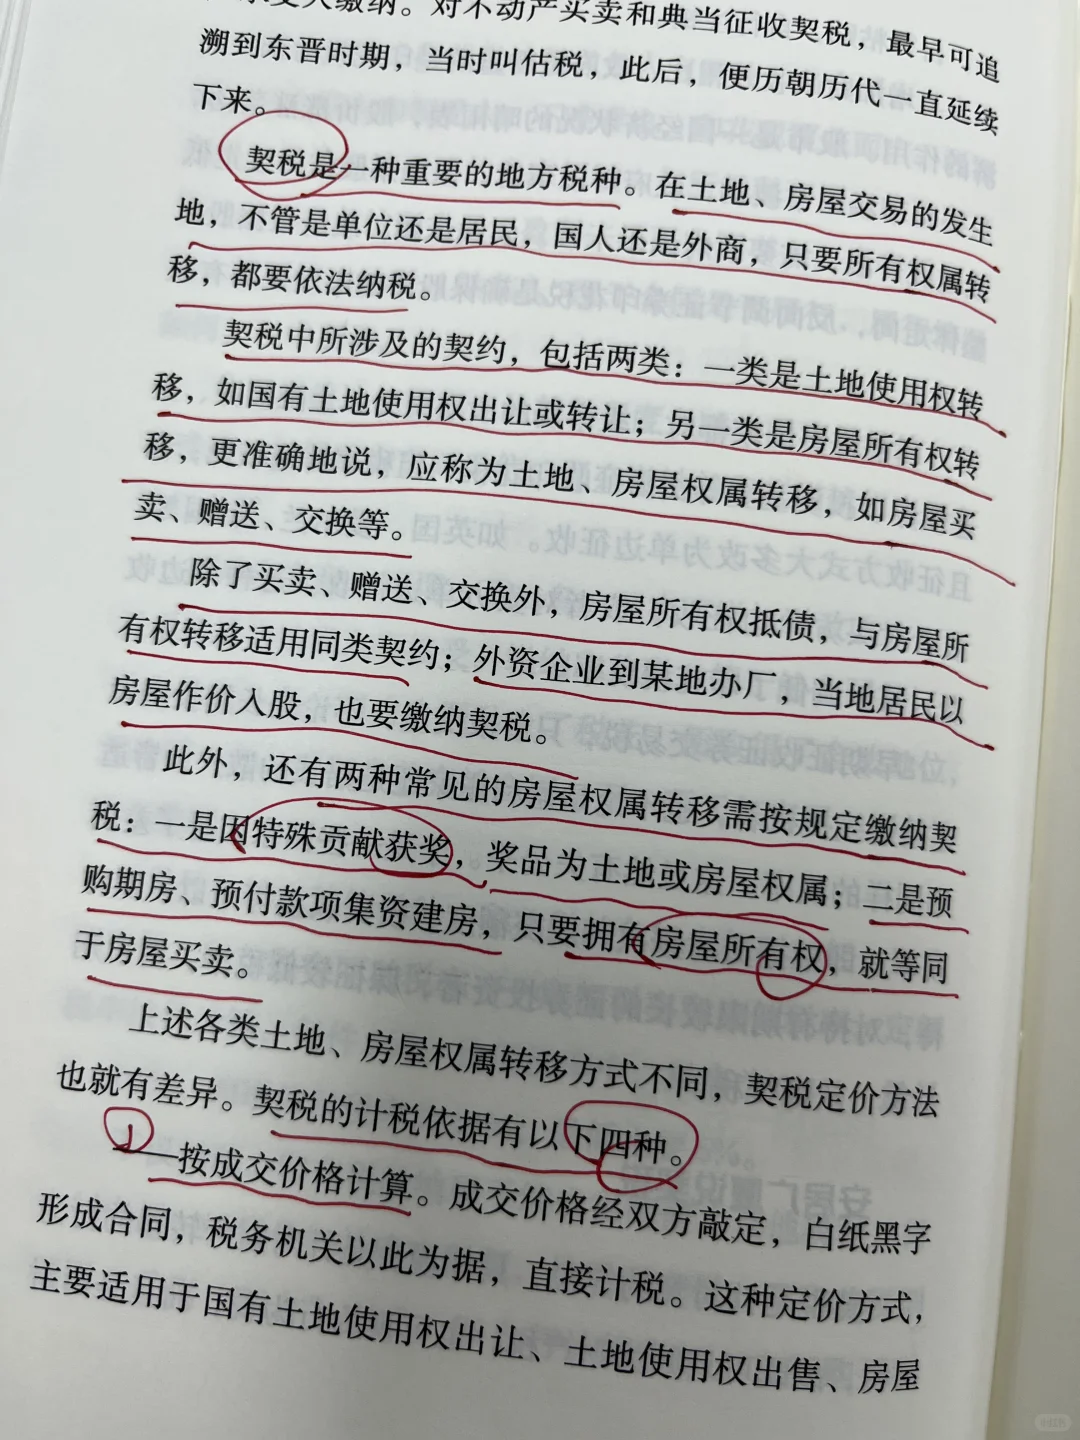 缴纳。对不动产买卖和典当征收契税，最早可追
溯到东晋时期，当时叫估税，此后，便历朝历代一直延续
下来。
契税是一种重要的地方税种。在土地、房屋交易的发生
地，不管是单位还是居民，国人还是外商，只要所有权属转
移，都要依法纳税。
契税中所涉及的契约，包括两类：一类是土地使用权转
移，如国有土地使用权出让或转让；另一类是房屋所有权转
移，更准确地说，应称为土地、房屋权属转移，如房屋买
卖、赠送、交换等。
除了买卖、赠送、交换外，房屋所有权抵债，与房屋所
有权转移适用同类契约；外资企业到某地办厂，当地居民以
房屋作价入股，也要缴纳契税。
此外，还有两种常见的房屋权属转移需按规定缴纳契
税：一是因特殊贡献获奖，奖品为土地或房屋权属；二是预
购期房、预付款项集资建房，只要拥有房屋所有权，就等同
于房屋买卖。
上述各类土地、房屋权属转移方式不同，契税定价方法
也就有差异。契税的计税依据有以下四种。
1
——按成交价格计算。成交价格经双方敲定，白纸黑字
形成合同，税务机关以此为据，直接计税。这种定价方式，
主要适用于国有土地使用权出让、土地使用权出售、房屋